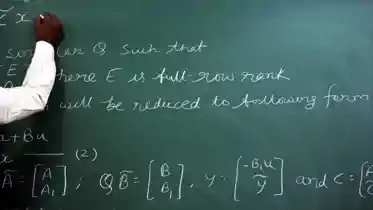 x
Q such that
E is full-row rank
will be reduced to following form
x + Bu
x (2)
Ã = [A A₁] ; Q B̃ = [B B₁] , y = [-B₁u ỹ] and C = [